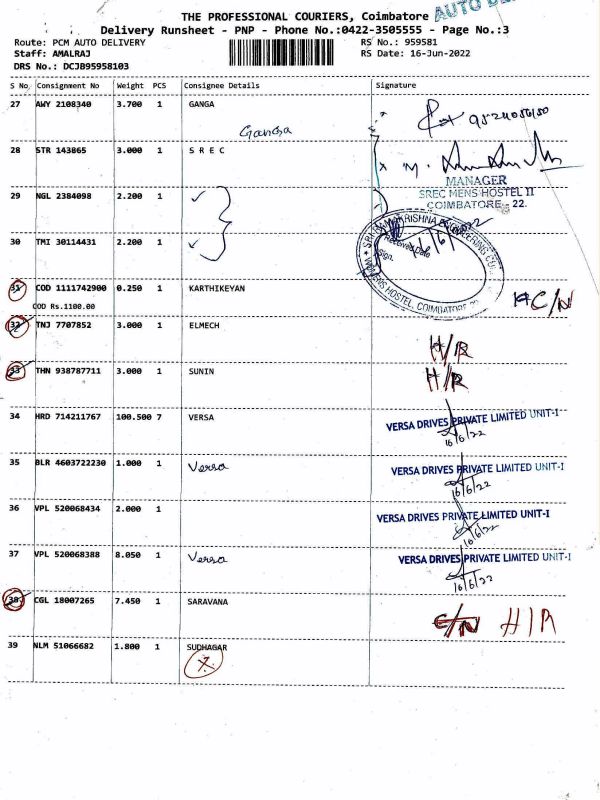 THE PROFESSIONAL COURIERS, Coimbatore
AUTO DE
Delivery Runsheet - PNP - Phone No.:0422-3505555 - Page No.:3
Route: PCM AUTO DELIVERY
RS No.: 959581
Staff: AMALRAJ
RS Date: 16-Jun-2022
DRS No.: DCJB95958103
S No Consignment No Weight PCS Consignee Details Signature
27 AWY 2108340 3.700 1 GANGA
Ganga
28 STR 143865 3.000 1 S R E C
MANAGER
SREC MENS HOSTEL II
COIMBATORE 22.
29 NGL 2384098 2.200 1
30 TMI 30114431 2.200 1
Received Date
Sign.
WOMENS HOSTEL, COIMBATORE
31 COD 1111742900 0.250 1 KARTHIKEYAN
C/N
COD Rs.1100.00
32 TNJ 7707852 3.000 1 ELMECH
H/R
33 THN 938787711 3.000 1 SUNIN
H/R
34 HRD 714211767 100.500 7 VERSA
VERSA DRIVES PRIVATE LIMITED UNIT-I
16/6/22
35 BLR 4603722230 1.000 1 Versa
VERSA DRIVES PRIVATE LIMITED UNIT-I
16/6/22
36 VPL 520068434 2.000 1
VERSA DRIVES PRIVATE LIMITED UNIT-I
16/6/22
37 VPL 520068388 8.050 1 Versa
VERSA DRIVES PRIVATE LIMITED UNIT-I
16/6/22
38 CGL 18007265 7.450 1 SARAVANA
C/N H/R
39 NLM 51066682 1.800 1 SUDHAGAR